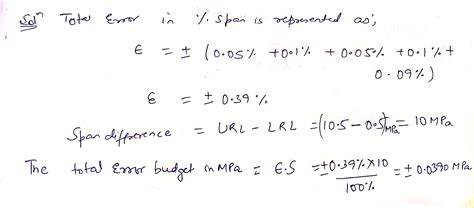 Solⁿ Total Error in % span is represented as;
ϵ = ± (0.05% +0.1% + 0.05% +0.1% +
0.09%)
ϵ = ± 0.39%
Span difference = URL - LRL = (10.5 - 0.5)MPa = 10 MPa
The total Error budget in MPa = ϵ.S = ±0.39% X 10 / 100% = ± 0.0390 MPa